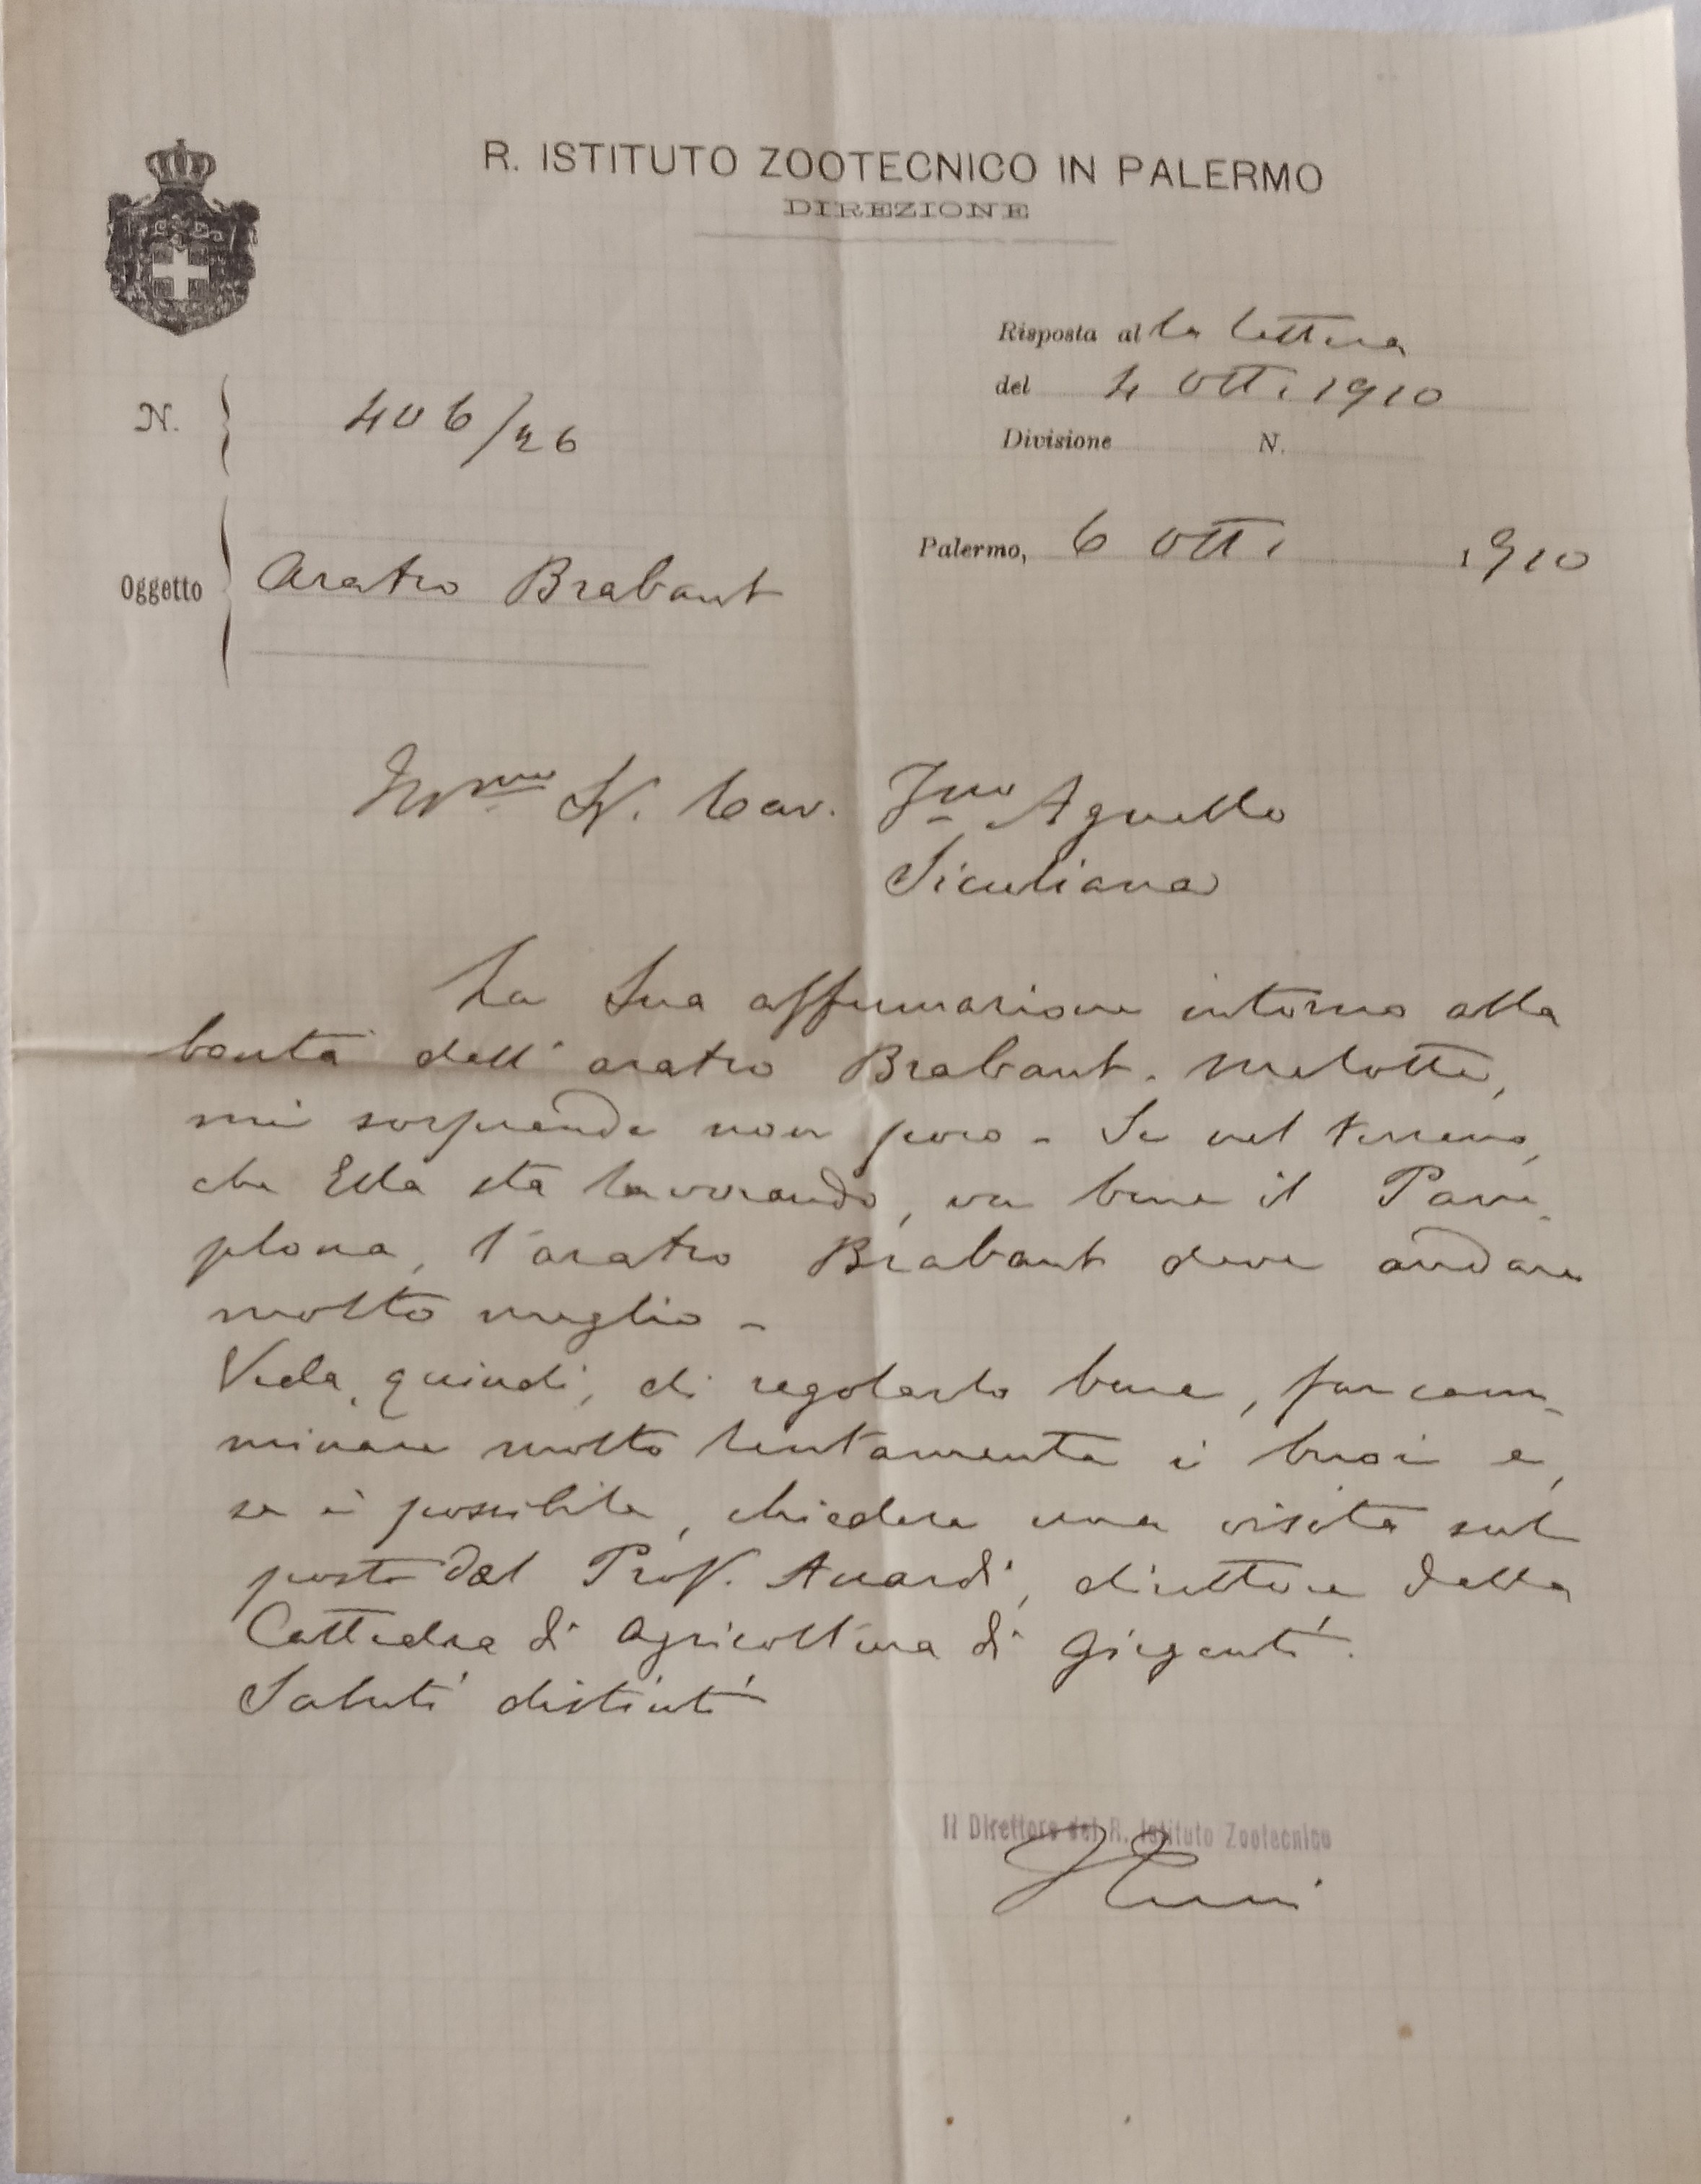 R. ISTITUTO ZOOTECNICO IN PALERMO
DIREZIONE
Risposta alla lettera
del 4 Ott. 1910
Divisione N.
N. 406/26
Palermo, 6 Ott. 1910
Oggetto Aratro Brabant
Ill.mo Sr. Cav. Agnello
Siculiana
La Sua affermazione intorno alla
bontà dell'aratro Brabant-Melotte,
mi sorprende non poco - Se nel terreno,
che Ella sta lavorando, va bene il Pam-
plona, l'aratro Brabant deve andare
molto meglio -
Veda, quindi, di regolarlo bene, far cam-
minare molto lentamente i buoi e,
se è possibile, chiedere una visita sul
posto dal Prof. direttore della
Cattedra di Agricoltura di Girgenti.
Saluti distinti
Il Direttore del R. Istituto Zootecnico